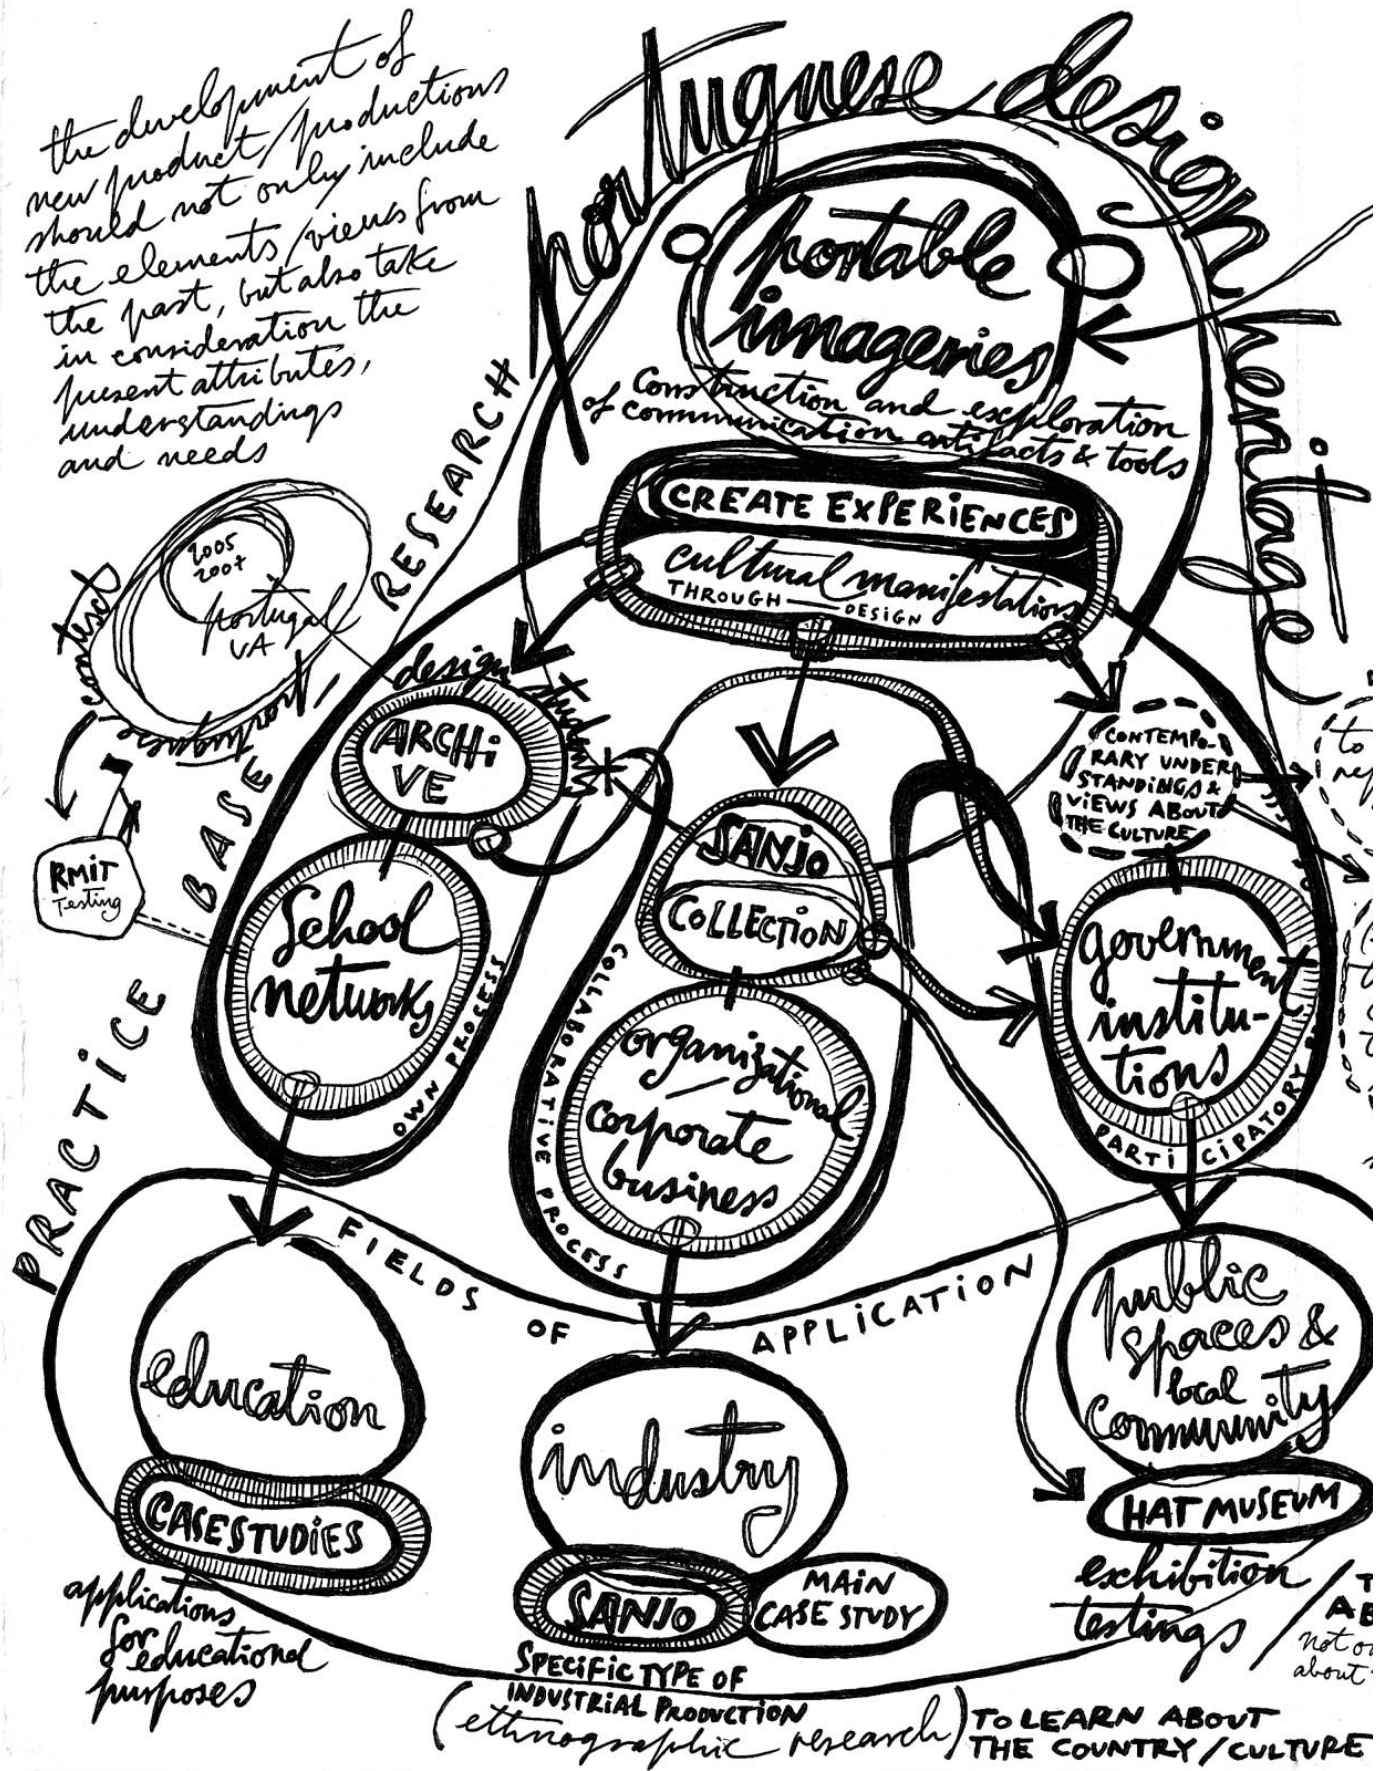 the development of
new product/productions
should not only include
the elements/views from
the past, but also take
in consideration the
present attributes,
understandings
and needs
portuguese design heritage
portable
imageries
construction and exploration
of communication artifacts & tools
CREATE EXPERIENCES
cultural manifestations
THROUGH — DESIGN
RESEARCH
2005
2007
portugal
UA
context
RMIT
Testing
PRACTICE BASE
design students
ARCHI
VE
School
networks
OWN PROCESS
SANJO
COLLECTION
organizational
corporate
business
COLLABORATIVE PROCESS
CONTEMPO-
RARY UNDER
STANDINGS &
VIEWS ABOUT
THE CULTURE
to
government
institu-
tions
PARTICIPATORY
FIELDS OF APPLICATION
education
CASE STUDIES
applications
for educational
purposes
industry
SANJO
MAIN
CASE STUDY
SPECIFIC TYPE OF
INDUSTRIAL PRODUCTION
(ethnographic research)
TO LEARN ABOUT
THE COUNTRY/CULTURE
public
spaces &
local
community
HAT MUSEUM
exhibition
testings
about